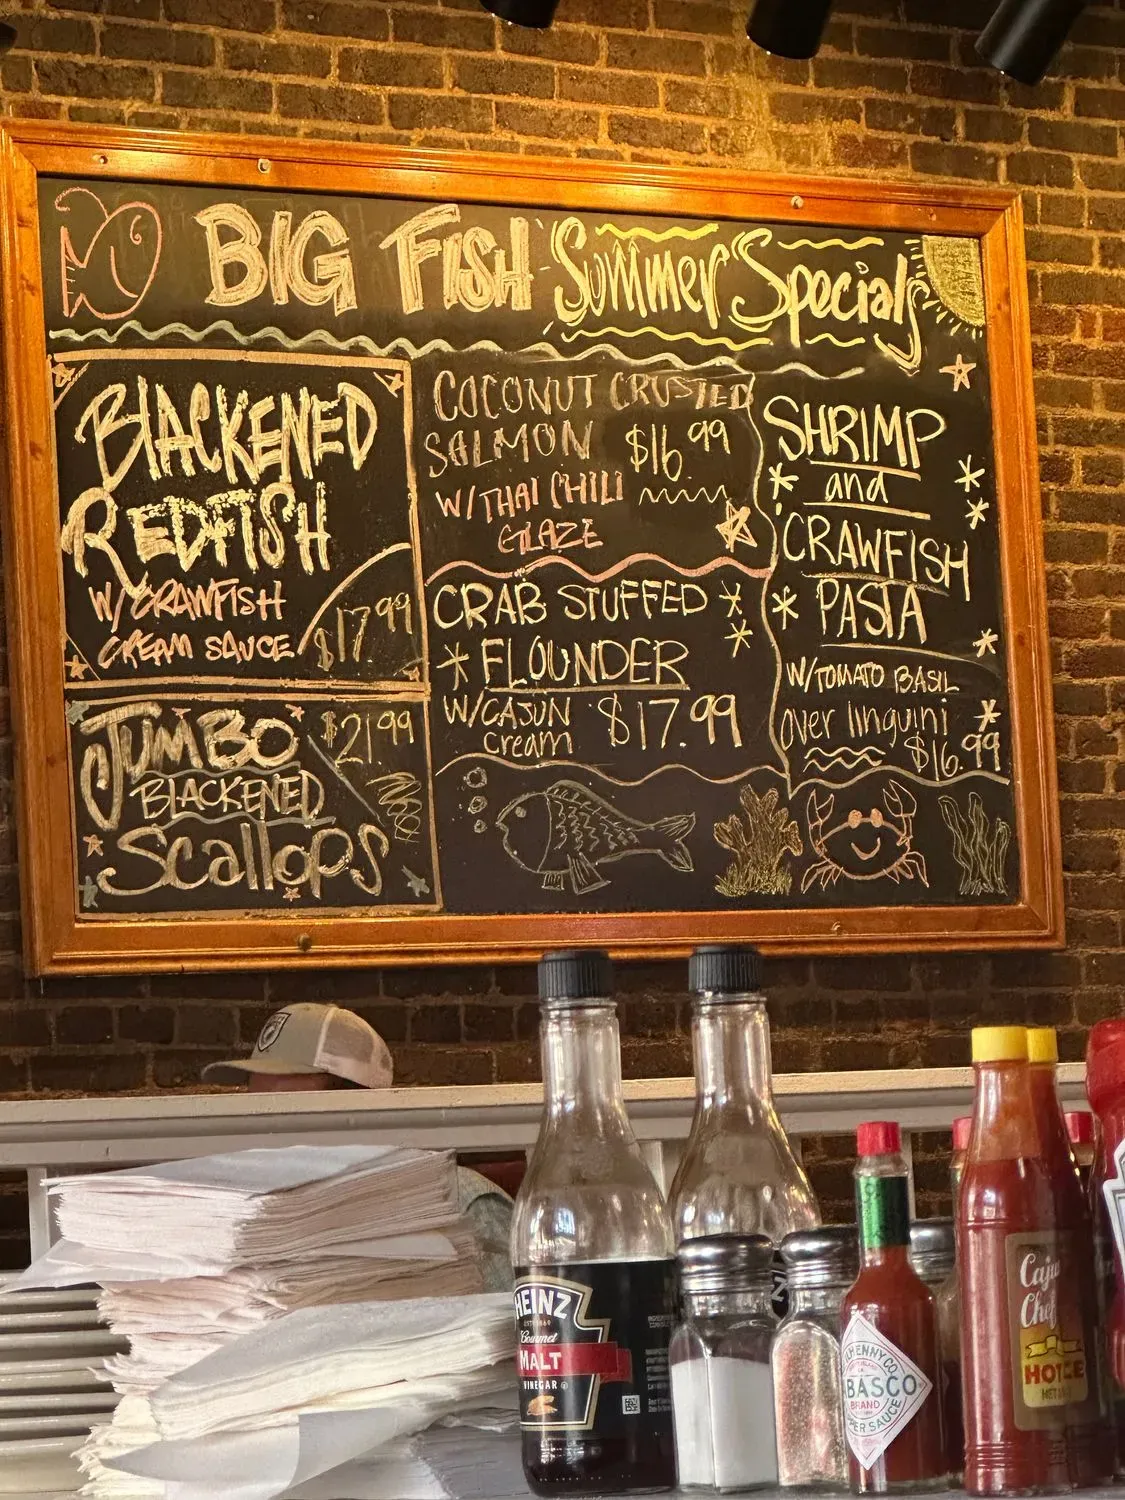 BIG FISH Summer Specials
BLACKENED
REDFISH
W/ CRAWFISH
CREAM SAUCE
$17.99
JUMBO
$21.99
BLACKENED
Scallops
COCONUT CRUSTED
SALMON $16.99
W/ THAI CHILI
GLAZE
CRAB STUFFED
FLOUNDER
W/ CAJUN
Cream
$17.99
SHRIMP
and
CRAWFISH
PASTA
W/ TOMATO BASIL
over linguini
$16.99
HEINZ
ESTD 1869
Gourmet
MALT
VINEGAR
BASCO
BRAND
PER SAUCE
Chef